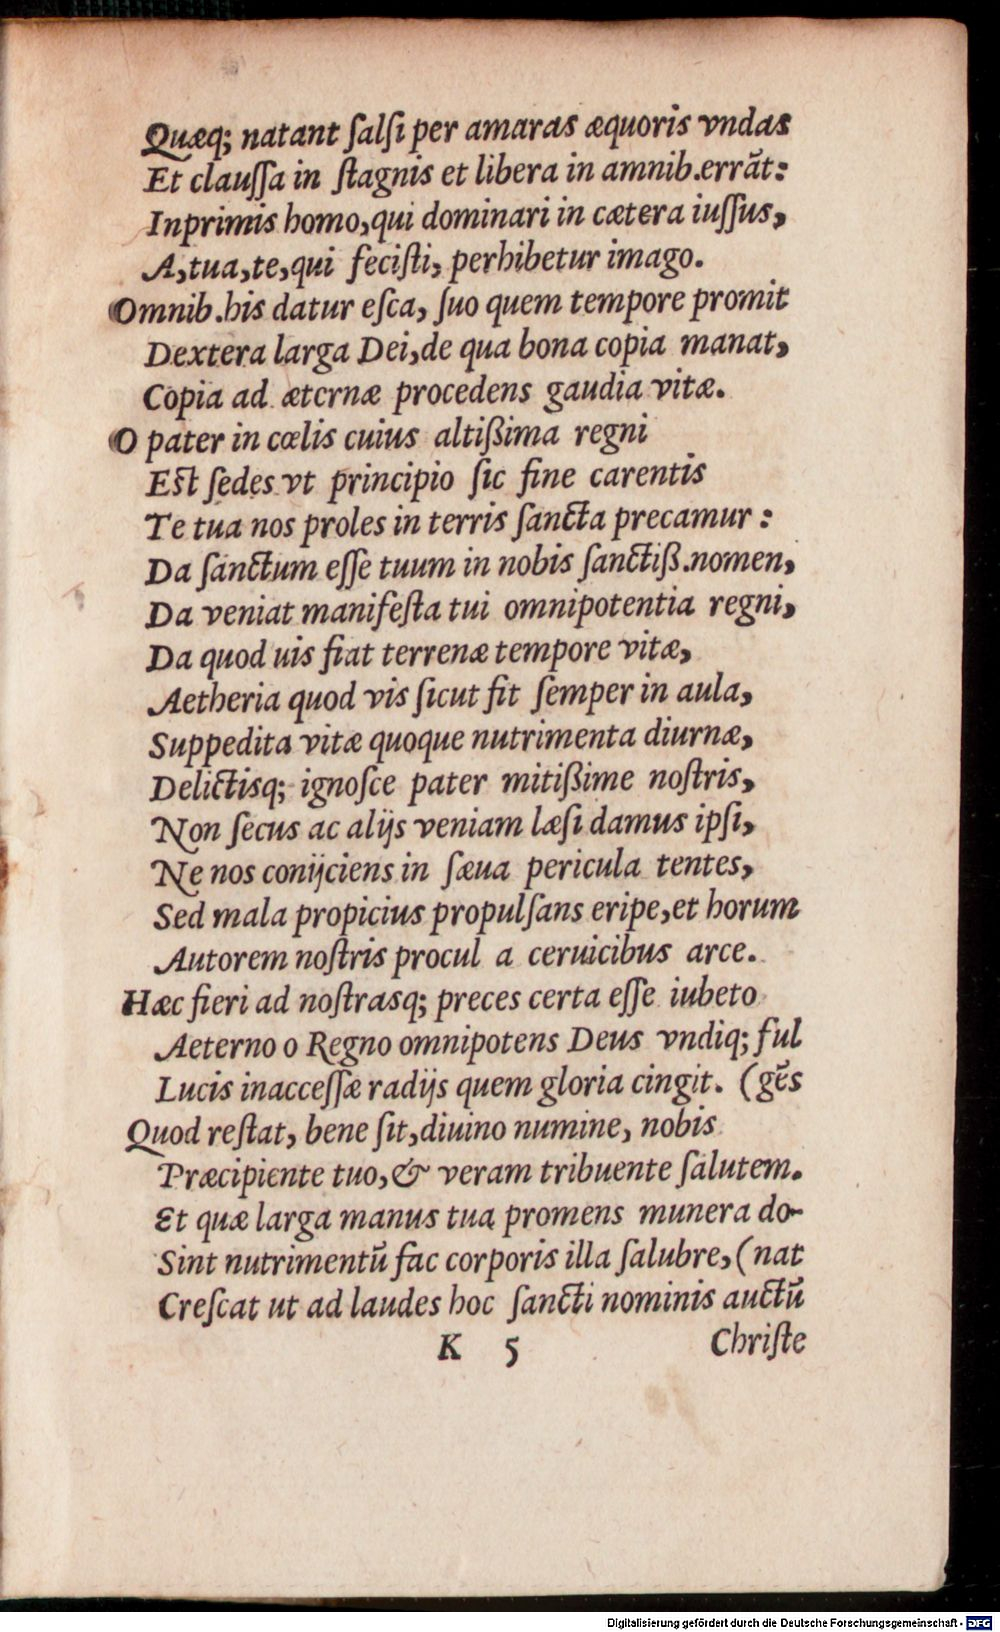 Quæq; natant ſalſi per amaras æquoris vndas
Et clauſſa in ſtagnis et libera in amnib.errāt:
Inprimis homo,qui dominari in cætera iuſſus,
A,tua,te,qui feciſti, perhibetur imago.
Omnib.his datur eſca, ſuo quem tempore promit
Dextera larga Dei,de qua bona copia manat,
Copia ad æternæ procedens gaudia vitæ.
O pater in cœlis cuius altißima regni
Eſt ſedes vt principio ſic fine carentis
Te tua nos proles in terris ſancta precamur :
Da ſanctum eſſe tuum in nobis ſanctiß.nomen,
Da veniat manifeſta tui omnipotentia regni,
Da quod uis fiat terrenæ tempore vitæ,
Aetheria quod vis ſicut fit ſemper in aula,
Suppedita vitæ quoque nutrimenta diurnæ,
Delictisq; ignoſce pater mitißime noſtris,
Non ſecus ac alijs veniam læſi damus ipſi,
Ne nos conijciens in ſæua pericula tentes,
Sed mala propicius propulſans eripe,et horum
Autorem noſtris procul a ceruicibus arce.
Hæc fieri ad noſtrasq; preces certa eſſe iubeto
Aeterno o Regno omnipotens Deus vndiq; ful
Lucis inacceſſæ radijs quem gloria cingit. (gēs
Quod reſtat, bene ſit,diuino numine, nobis
Præcipiente tuo,& veram tribuente ſalutem.
Et quæ larga manus tua promens munera do-
Sint nutrimentū fac corporis illa ſalubre,(nat
Creſcat ut ad laudes hoc ſancti nominis auctū
K 5 Chriſte
Digitalisierung gefördert durch die Deutsche Forschungsgemeinschaft - DFG